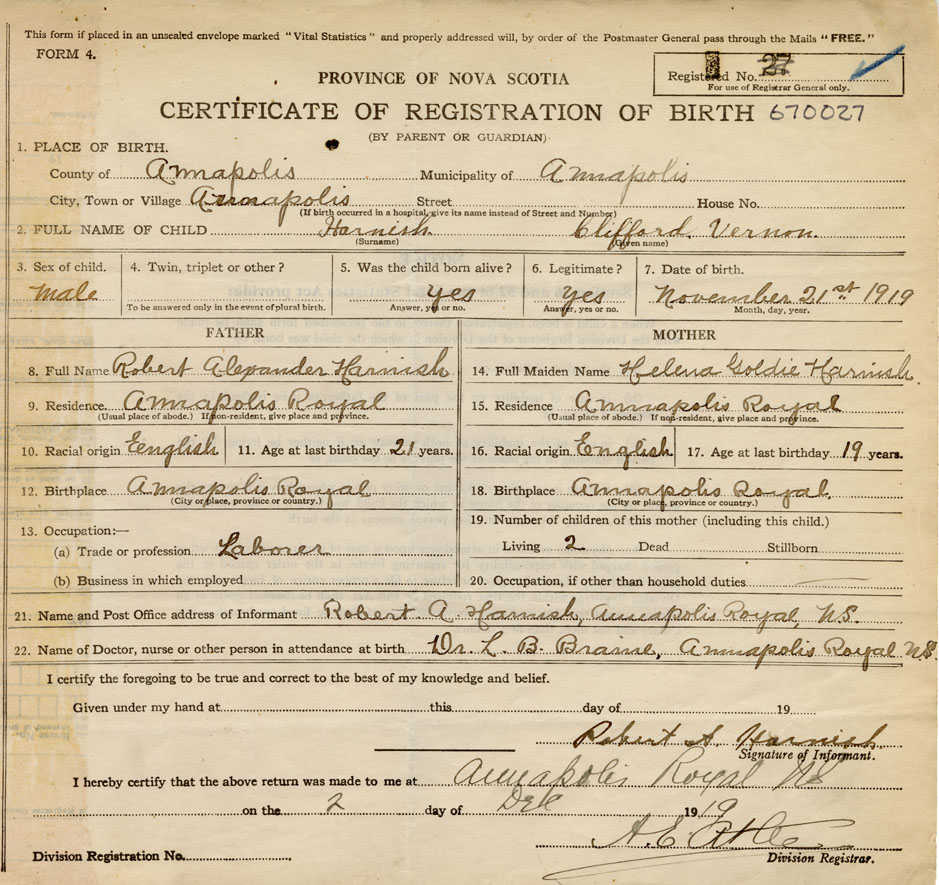 This form if placed in an unsealed envelope marked "Vital Statistics" and properly addressed will, by order of the Postmaster General pass through the Mails "FREE."
FORM 4.
Registered No. 27
For use of Registrar General only.
PROVINCE OF NOVA SCOTIA
CERTIFICATE OF REGISTRATION OF BIRTH 670027
(BY PARENT OR GUARDIAN)
1. PLACE OF BIRTH.
County of Annapolis Municipality of Annapolis
City, Town or Village Annapolis Street House No.
(If birth occurred in a hospital, give its name instead of Street and Number)
2. FULL NAME OF CHILD Harnish Clifford Vernon.
(Surname) (Given name)
3. Sex of child. 4. Twin, triplet or other? 5. Was the child born alive? 6. Legitimate? 7. Date of birth.
Male Yes Yes November 21st 1919
To be answered only in the event of plural birth. Answer, yes or no. Answer, yes or no. Month, day, year.
FATHER MOTHER
8. Full Name Robert Alexander Harnish 14. Full Maiden Name Helena Goldie Harnish.
9. Residence Annapolis Royal 15. Residence Annapolis Royal
(Usual place of abode.) If non-resident, give place and province. (Usual place of abode.) If non-resident, give place and province.
10. Racial origin English 11. Age at last birthday 21 years. 16. Racial origin English 17. Age at last birthday 19 years.
12. Birthplace Annapolis Royal 18. Birthplace Annapolis Royal
(City or place, province or country.) (City or place, province or country.)
13. Occupation:— 19. Number of children of this mother (including this child.)
(a) Trade or profession Laborer Living 2 Dead Stillborn
(b) Business in which employed 20. Occupation, if other than household duties
21. Name and Post Office address of Informant Robert A Harnish, Annapolis Royal, N.S.
22. Name of Doctor, nurse or other person in attendance at birth Dr. L. B. Braine, Annapolis Royal N.S.
I certify the foregoing to be true and correct to the best of my knowledge and belief.
Given under my hand at this day of 19
Robert A. Harnish
Signature of Informant.
I hereby certify that the above return was made to me at Annapolis Royal NS
on the 2 day of Dec 1919
A. E.
Division Registration No. Division Registrar.